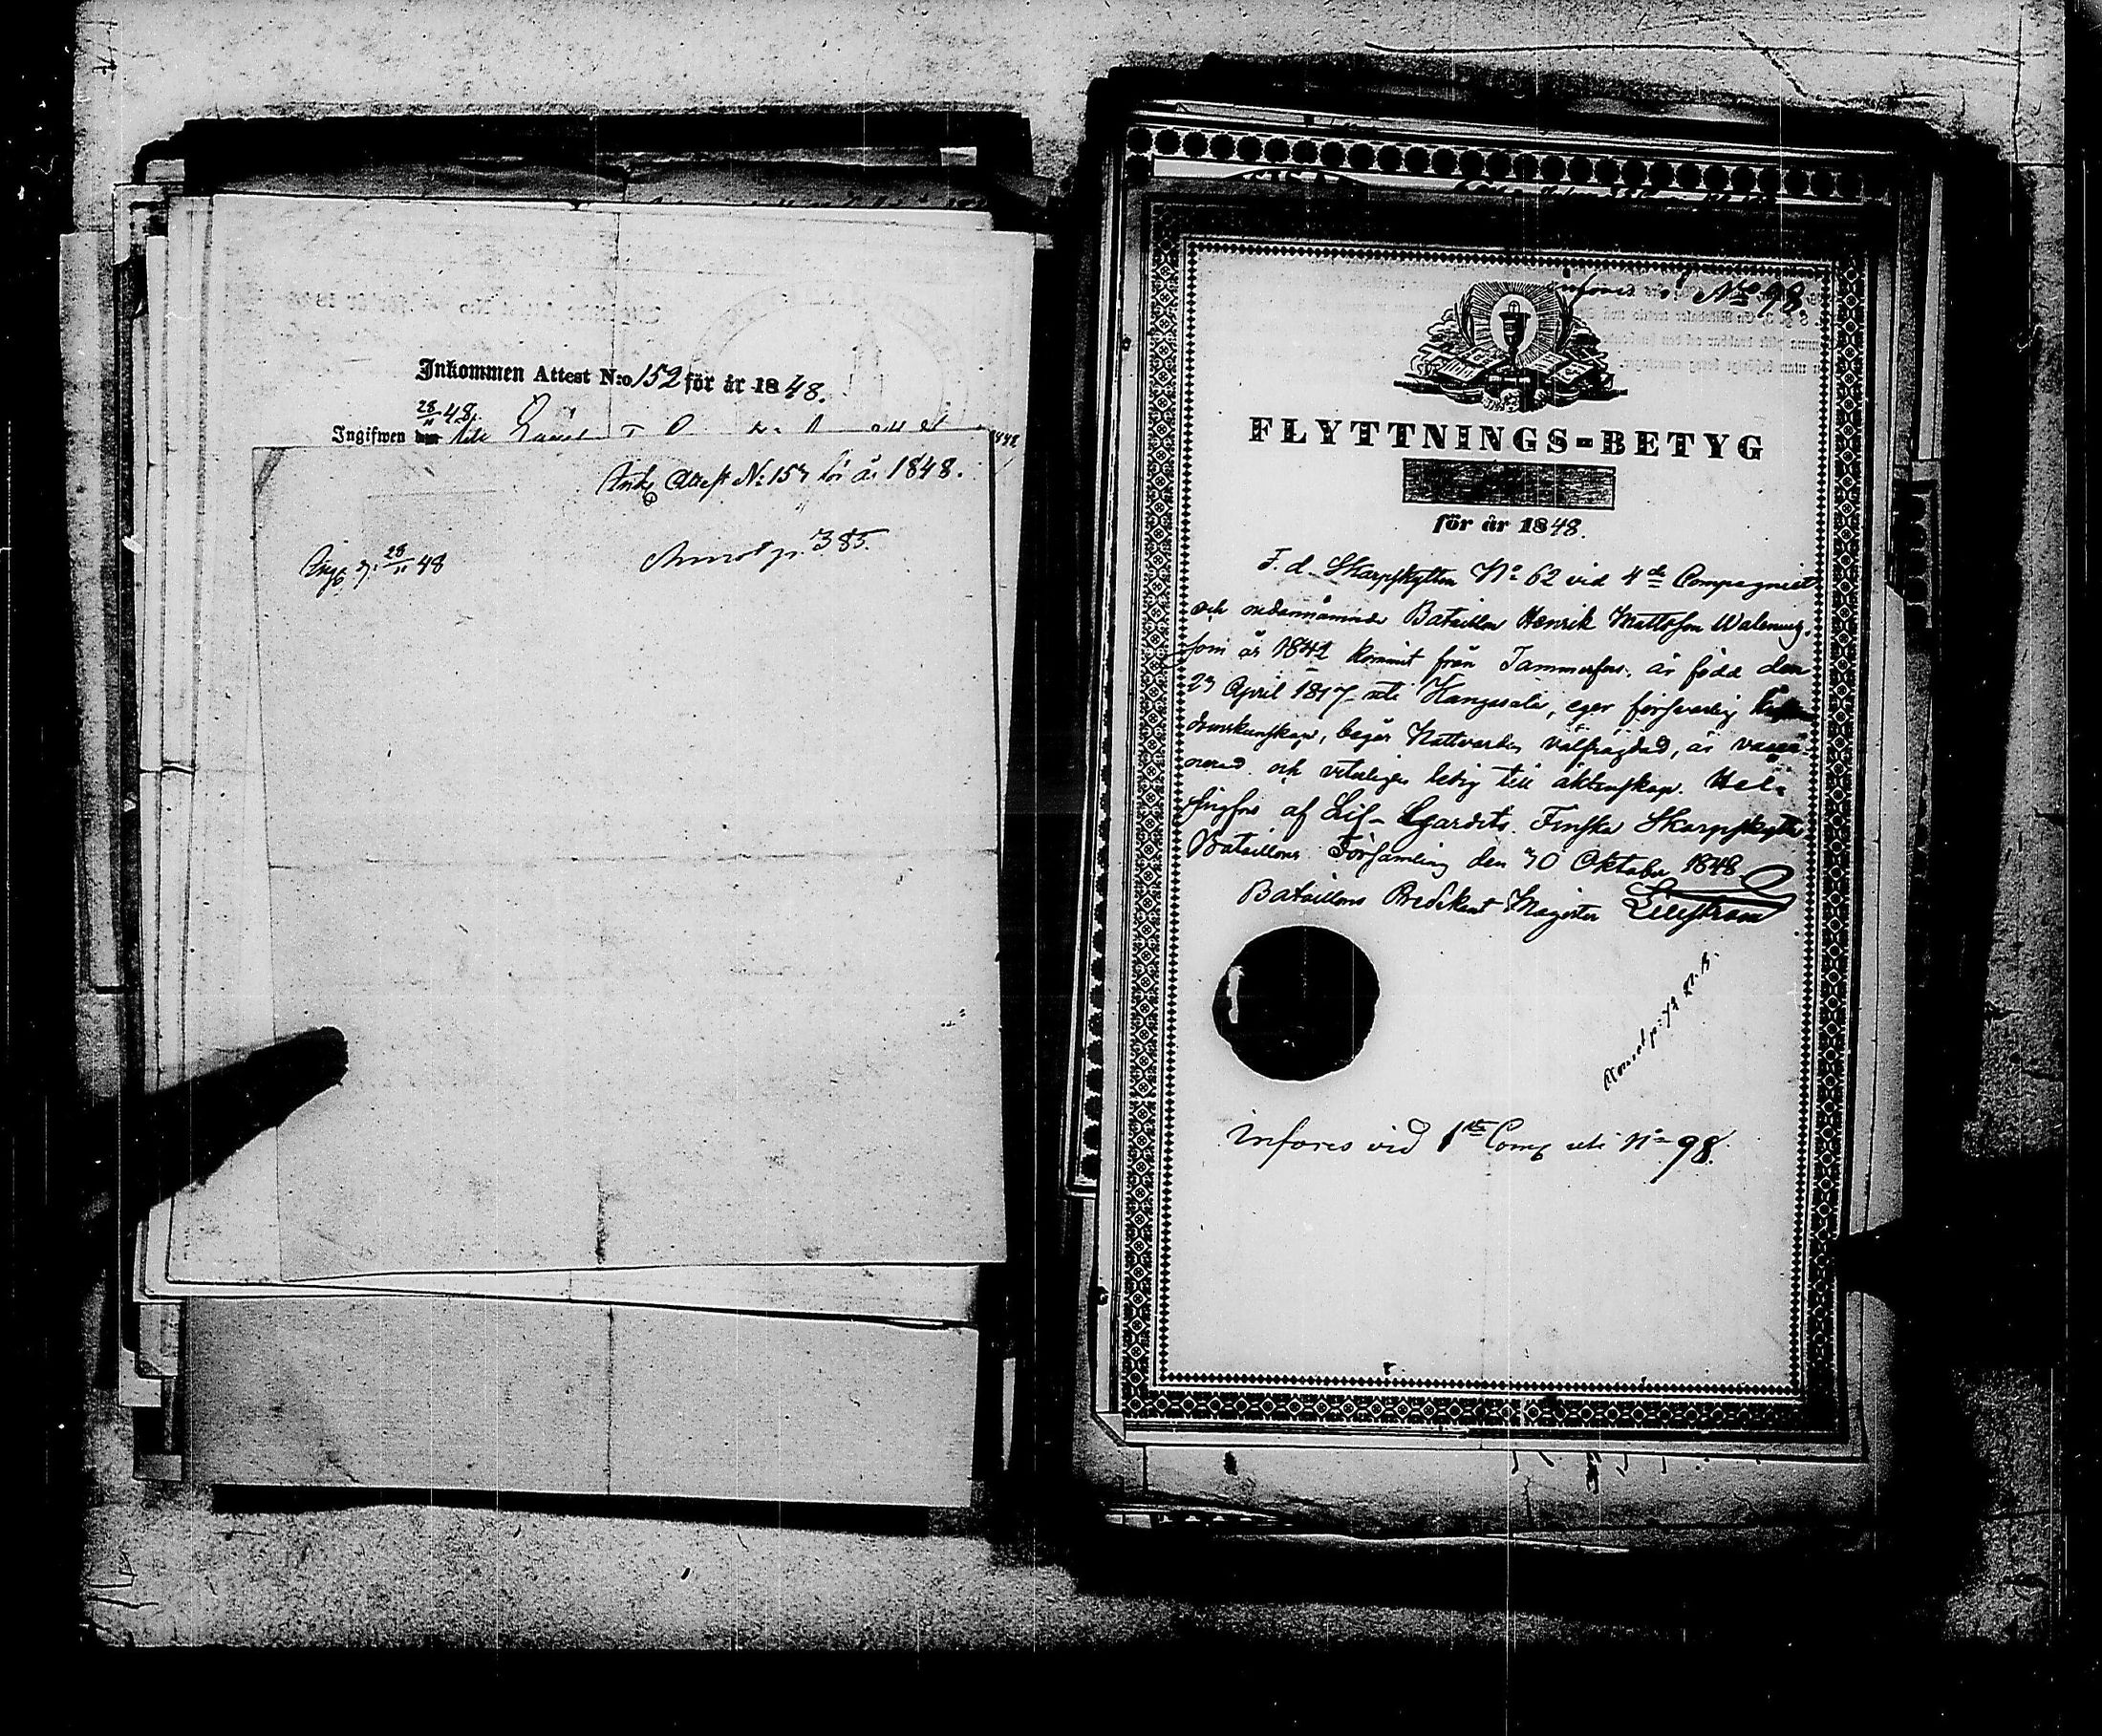 Inkommen Attest N:o 152 för år 1848.
28/11 48.
Ingifwen den
Ink. Attest No 153 för år 1848.
Ing. d. 28/11 48
Annot p. 385.
införes N:ro 98.
FLYTTNINGS-BETYG
för år 1848.
F. d. Skarpskytten No 62 vid 4de Compagniet
och nedannämnde Bataillon Henrik Mattsson
som år 1842 kommit från Tammerfors, är född den
23 April 1817 uti Kangasala, eger försvarlig
domskunskap, begår Nattvarden välfrägdad, är vacci-
nerad och veterligen ledig till äktenskap. Hel-
singfors af Lif-Gardets Finska Skarpskytte
Bataillons Församling den 30 Oktober 1848
Bataillons Predikant Magister Lilljström
Annot p: 72
Införes vid 1sta Comp uti No 98.